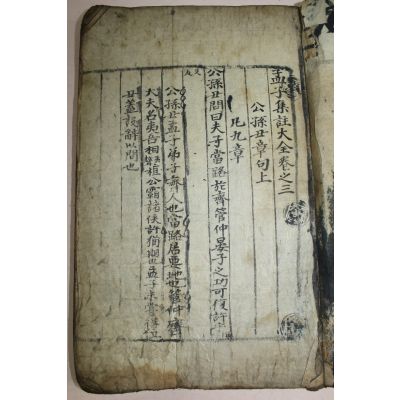 孟子集註大全卷之三
公孫丑章句上
凡九章
公孫丑問曰夫子當路於齊管仲晏子之功可復許乎
公孫丑孟子弟子齊人也當路居要地也管仲齊
大夫名夷吾相桓公霸諸侯許猶期也孟子未嘗得政
丑蓋設辭以問也